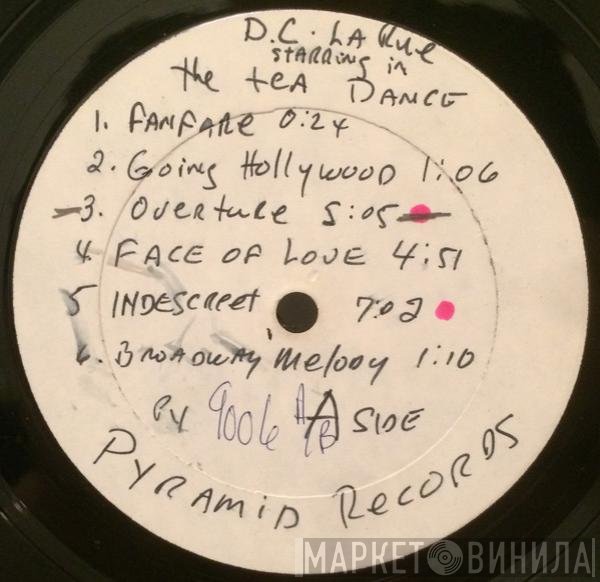 D.C. LA Rue
STARRING in
the teA DANCE
1. FANFARE 0:24
2. Going Hollywood 1:06
3. Overture 5:05
4. FACE OF LOVE 4:51
5 INDESCReet 7:02
6. BROADWAY Melody 1:10
PY 9006 A/B A SIDE
PYRAMID RECORDS
МАРКЕТ ВИНИЛА